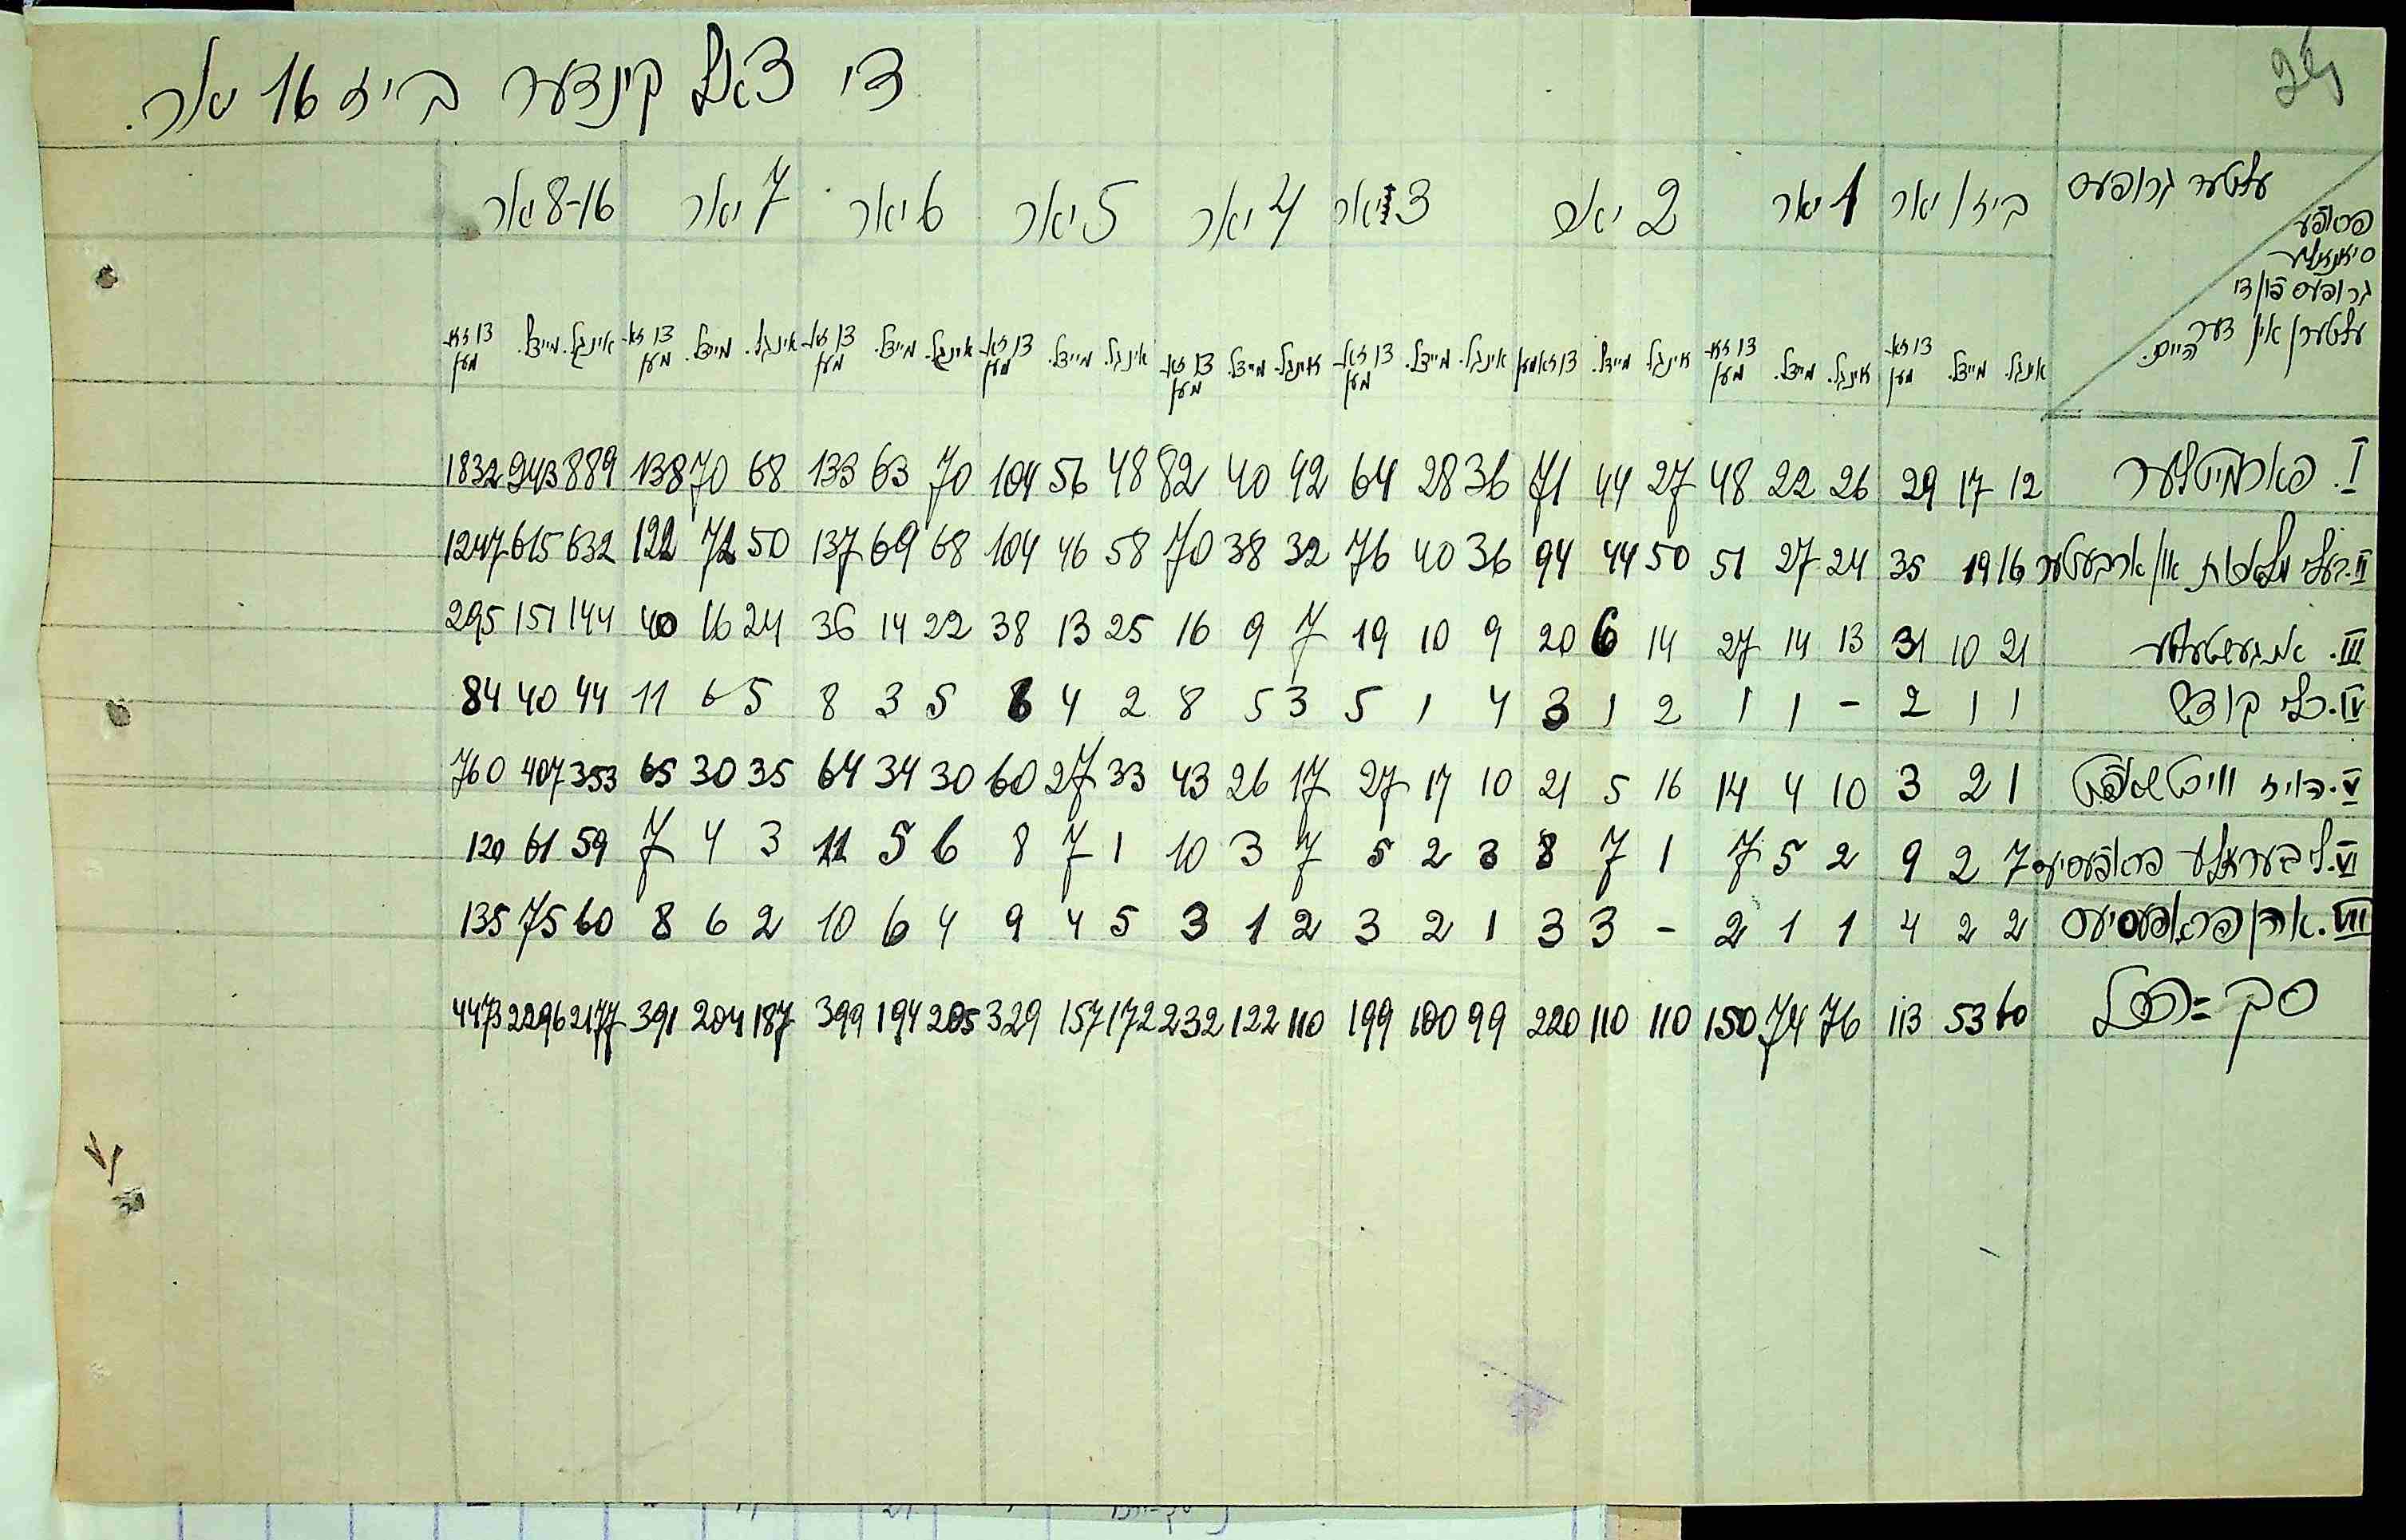 די צאל קינדער ביז 16 יאר.
עלטער גרופעס ביז 1 יאר 1 יאר 2 יאר 3 יאר 4 יאר 5 יאר 6 יאר 7 יאר 8-16 יאר
גרופעס פון די
עלטערן אין דער היים.
אינגל. מיידל. צוזאמען אינגל. מיידל. צוזאמען אינגל. מיידל. צוזאמען אינגל. מיידל. צוזאמען אינגל. מיידל. צוזאמען אינגל. מיידל. צוזאמען אינגל. מיידל. צוזאמען אינגל. מיידל. צוזאמען אינגל. מיידל. צוזאמען
I. פארמיטלער 12 17 29 26 22 48 27 44 71 36 28 64 42 40 82 48 56 104 70 63 133 68 70 138 889 943 1832
II. בעלי מלאכות און ארבעטער 16 19 35 24 27 51 50 44 94 36 40 76 32 38 70 58 46 104 68 69 137 50 72 122 632 615 1247
III. אנגעשטעלטע 21 10 31 13 14 27 14 6 20 9 10 19 7 9 16 25 13 38 22 14 36 24 16 40 144 151 295
IV. כלי קודש 1 1 2 - 1 1 2 1 3 4 1 5 3 5 8 2 4 6 5 3 8 5 6 11 44 40 84
V. הויז ווירטשאפט 1 2 3 10 4 14 16 5 21 10 17 27 17 26 43 33 27 60 30 34 64 35 30 65 353 407 760
VI. ליבעראלע פראפעסיעס 7 2 9 2 5 7 1 7 8 3 2 5 7 3 10 1 7 8 6 5 11 3 4 7 59 61 120
VII. אן פראפעסיעס 2 2 4 1 1 2 - 3 3 1 2 3 2 1 3 5 4 9 4 6 10 2 6 8 60 75 135
סך=הכל 60 53 113 76 74 150 110 110 220 99 100 199 110 122 232 172 157 329 205 194 399 187 204 391 2177 2296 4473